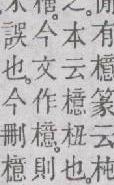 有檍篆云杶
之。本云檍杻也。
今文作檍。則
誤也。今刪檍